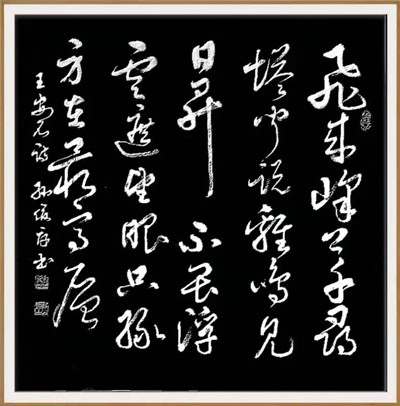 飛来峰上千尋
塔聞説雞鳴見
日昇不畏浮
雲遮望眼只緣
身在最高層
王安石詩 孫 書